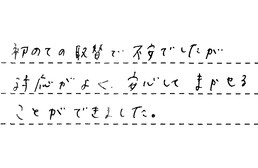 初めての取替で不安でしたが
対応がよく、安心してまかせる
ことができました。